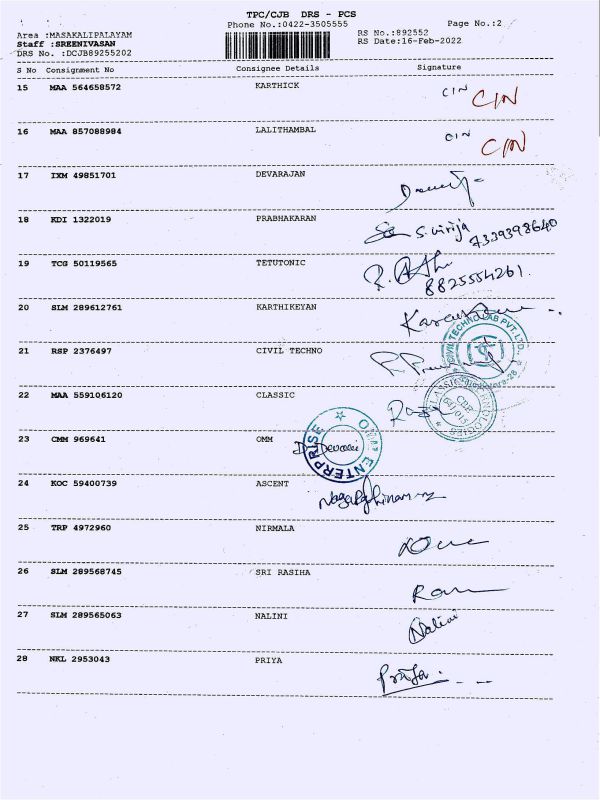 TPC/CJB DRS - PCS
Phone No.:0422-3505555
Page No.:2
Area :MASAKALIPALAYAM
RS No.:892552
Staff :SREENIVASAN
RS Date:16-Feb-2022
DRS No. :DCJB89255202
S No Consignment No Consignee Details Signature
15 MAA 564658572 KARTHICK CIN CIN
16 MAA 857088984 LALITHAMBAL CIN CIN
17 IXM 49851701 DEVARAJAN
18 KDI 1322019 PRABHAKARAN S. Virija
7339398640
19 TCG 50119565 TETUTONIC
8825554261.
20 SLM 289612761 KARTHIKEYAN
21 RSP 2376497 CIVIL TECHNO
CIVIL TECHNO LAB PVT. LTD.
22 MAA 559106120 CLASSIC
CBE
641 015
23 CMM 969641 OMM D. Devaki
ENTERPRISE
24 KOC 59400739 ASCENT
25 TRP 4972960 NIRMALA
26 SLM 289568745 SRI RASIHA
27 SLM 289565063 NALINI Nalini
28 NKL 2953043 PRIYA Priya